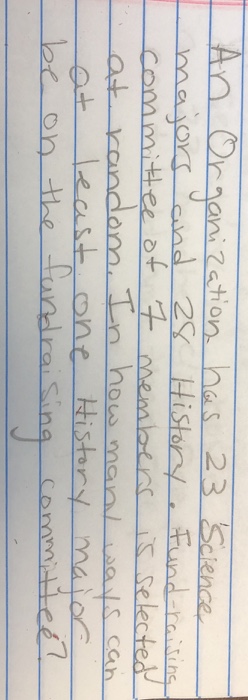 An Organization has 23 Science
majors and 28 History. Fund-raising
committee of 7 members is selected
at random. In how many ways can
at least one History major
be on the fundraising committee?